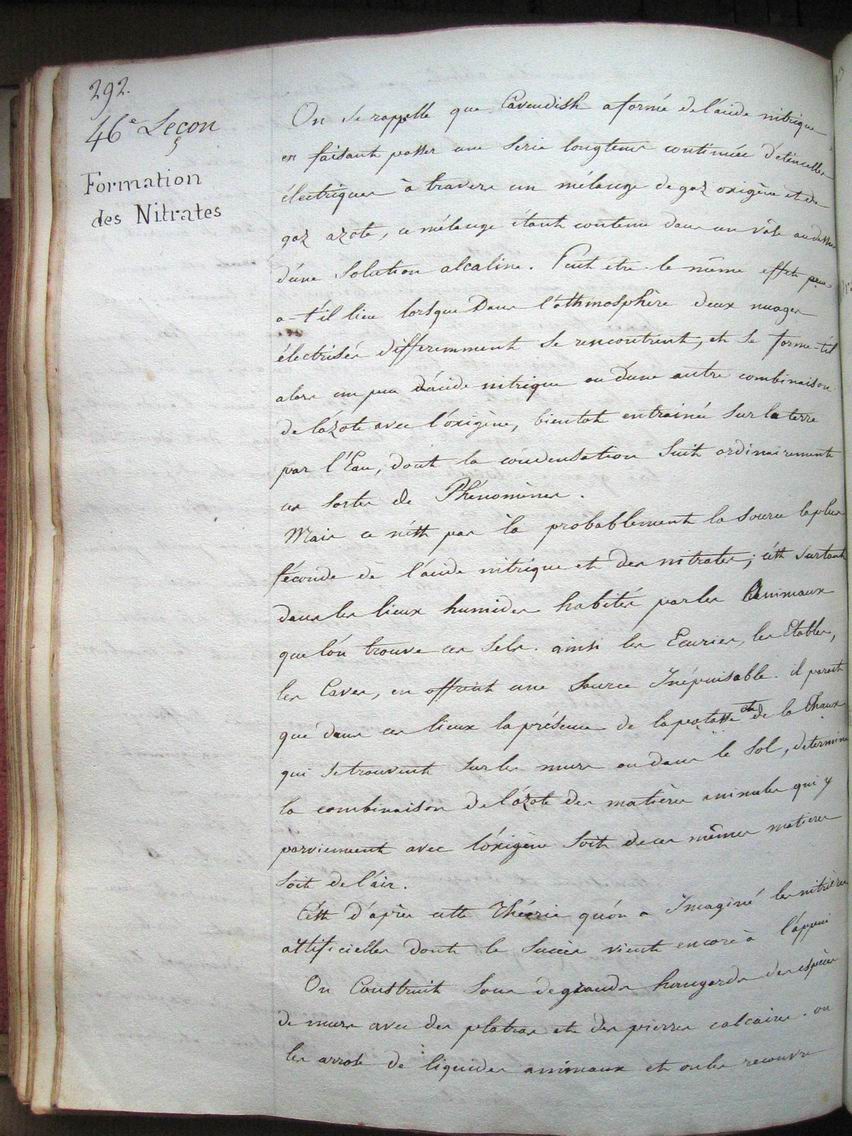 292.
46e Leçon
Formation
des Nitrates
On se rappelle que Cavendish a formé de l'acide nitrique
en faisant passer une serie longtems continuée d'étincelles
électriques à travers un mélange de gaz oxigène et de
gaz azote, ce mélange étant contenu dans un vâse au dessus
d'une Solution alcaline. Peut être le même effet
a-t'il lieu lorsque Dans l'athmosphère deux nuages
électrisés differemment se rencontrent, et se forme-t-il
alors un peu d'acide nitrique ou d'une autre combinaison
de l'azote avec l'oxigène, bientot entrainée sur la terre
par l'Eau, dont la condensation suit ordinairement
ces sortes de Phénomènes.
Mais ce n'est pas là probablement la source la plus
féconde de l'acide nitrique et des nitrates; c'est surtout
dans les lieux humides habités par les Animaux
que l'on trouve ces sels. ainsi les Ecuries, les Etables,
les Caves, en offrent une source Inépuisable. il parait
que dans ces lieux la présence de la potasse et de la Chaux
qui se trouvent sur les murs ou dans le sol, determine
la combinaison de l'azote des matières animales qui y
parviennent avec l'oxigène soit de ces mêmes matieres
soit de l'air.
C'est d'après cette Théorie qu'on a Imaginé les nitrières
artificielles dont le succès vient encore à l'appui
On Construit sous de grands hangards des espèces
de murs avec des platras et des pierres calcaires. on
les arrose de liquides animaux et on les recouvre